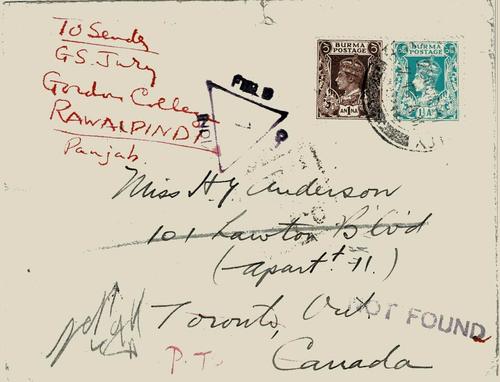 To Sender
G.S. Jury
Gordon College
RAWALPINDI
Panjab.
BURMA
POSTAGE
ANNA
BURMA
POSTAGE
1½A
Miss H.Y. Anderson
101 Lawton Blvd
(-apart't 11.)
Toronto, Ont.
NOT FOUND
P.T.
Canada